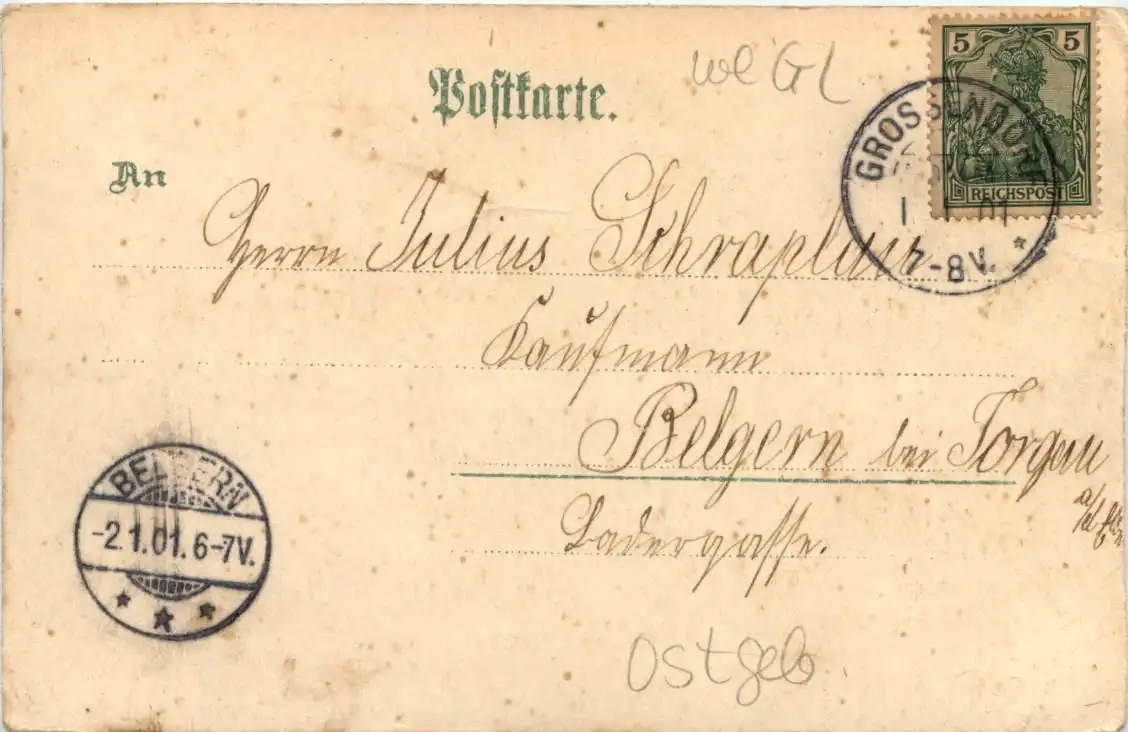 we GL
Postkarte.
5 5
REICHSPOST
GROSSENDORF
1 1 01
7-8V.
An
Herrn Julius Schraplau
Kaufmann
Belgern bei Torgau
a/d
Badergasse.
BELGERN
-2.1.01.6-7V.
Ostgeb.